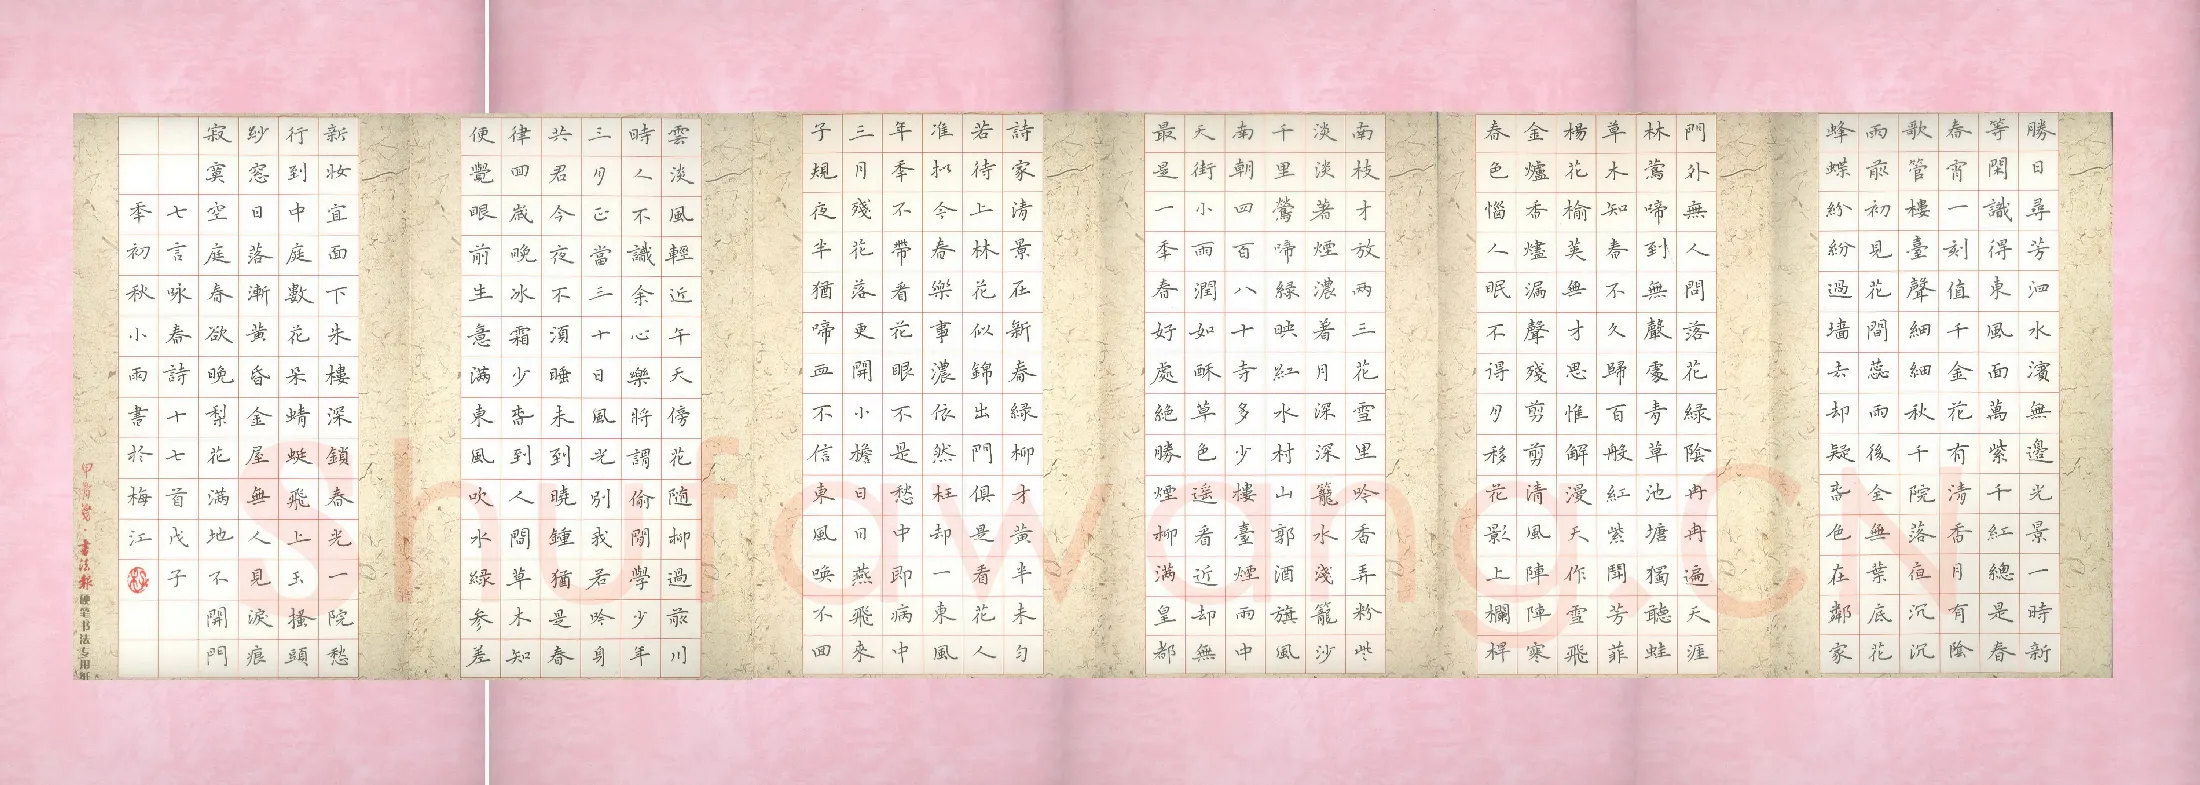 勝日尋芳泗水濱無邊光景一時新
等閑識得東風面萬紫千紅總是春
春宵一刻值千金花有清香月有陰
歌管樓臺聲細細秋千院落夜沉沉
雨前初見花間蕊雨後全無葉底花
蜂蝶紛紛過墻去却疑春色在鄰家
門外無人問落花綠陰冉冉遍天涯
林鶯啼到無聲處青草池塘獨聽蛙
草木知春不久歸百般紅紫鬥芳菲
楊花榆莢無才思惟解漫天作雪飛
金爐香燼漏聲殘剪剪清風陣陣寒
春色惱人眠不得月移花影上欄桿
南枝才放兩三花雪里吟香弄粉些
淡淡著煙濃著月深深籠水淺籠沙
千里鶯啼綠映紅水村山郭酒旗風
南朝四百八十寺多少樓臺煙雨中
天街小雨潤如酥草色遥看近却無
最是一年春好處絕勝煙柳滿皇都
詩家清景在新春綠柳才黃半未勻
若待上林花似錦出門俱是看花人
准擬今春樂事濃依然枉却一東風
年年不帶看花眼不是愁中即病中
三月殘花落更開小檐日日燕飛來
子規夜半猶啼血不信東風喚不回
雲淡風輕近午天傍花隨柳過前川
時人不識余心樂將謂偷閒學少年
三月正當三十日風光別我苦吟身
共君今夜不須睡未到曉鐘猶是春
律回歲晚冰霜少春到人間草木知
便覺眼前生意滿東風吹水綠参差
新妝宜面下朱樓深鎖春光一院愁
行到中庭數花朵蜻蜓飛上玉搔頭
紗窓日落漸黃昏金屋無人見淚痕
寂寞空庭春欲晚梨花滿地不開門
七言咏春詩十七首戊子
年初秋小雨書於梅江
书法报硬笔书法专用纸
Shufawang.CN